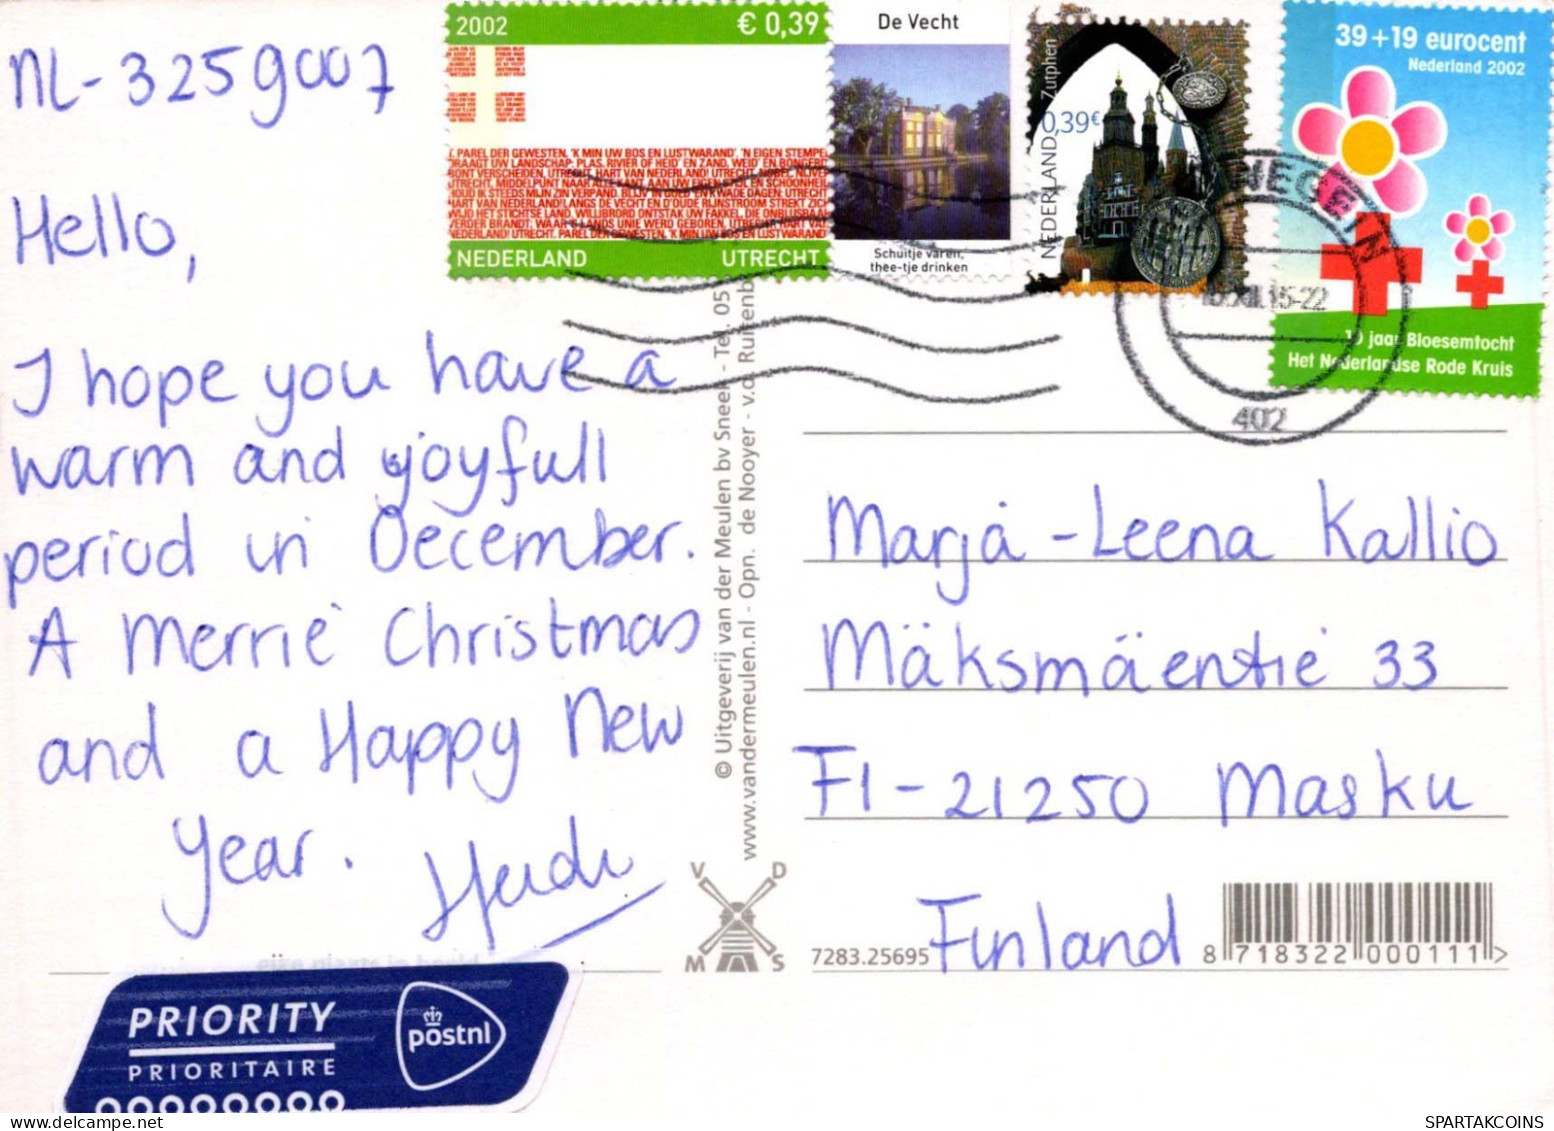 2002 € 0,39
NEDERLAND UTRECHT
De Vecht
Schuitje varen,
thee-tje drinken
Zutphen
0,39€
NEDERLAND
39 + 19 eurocent
Nederland 2002
10 jaar Bloesemtocht
Het Nederlandse Rode Kruis
402
NL-3259007
Hello,
I hope you have a
warm and yoyfull
period in December.
A Merrie Christmas
and a Happy New
Year.
Heidi
© Uitgeverij van der Meulen bv Sneek - Tel. 05
www.vandermeulen.nl - Opn. de Nooyer - v.d.
V D
M S
Marja-Leena Kallio
Mäksmäentie 33
FI-21250 Masku
Finland
7283.25695
8 718322 000111 >
PRIORITY
PRIORITAIRE
postnl
SPARTAKCOINS
www.delcampe.net